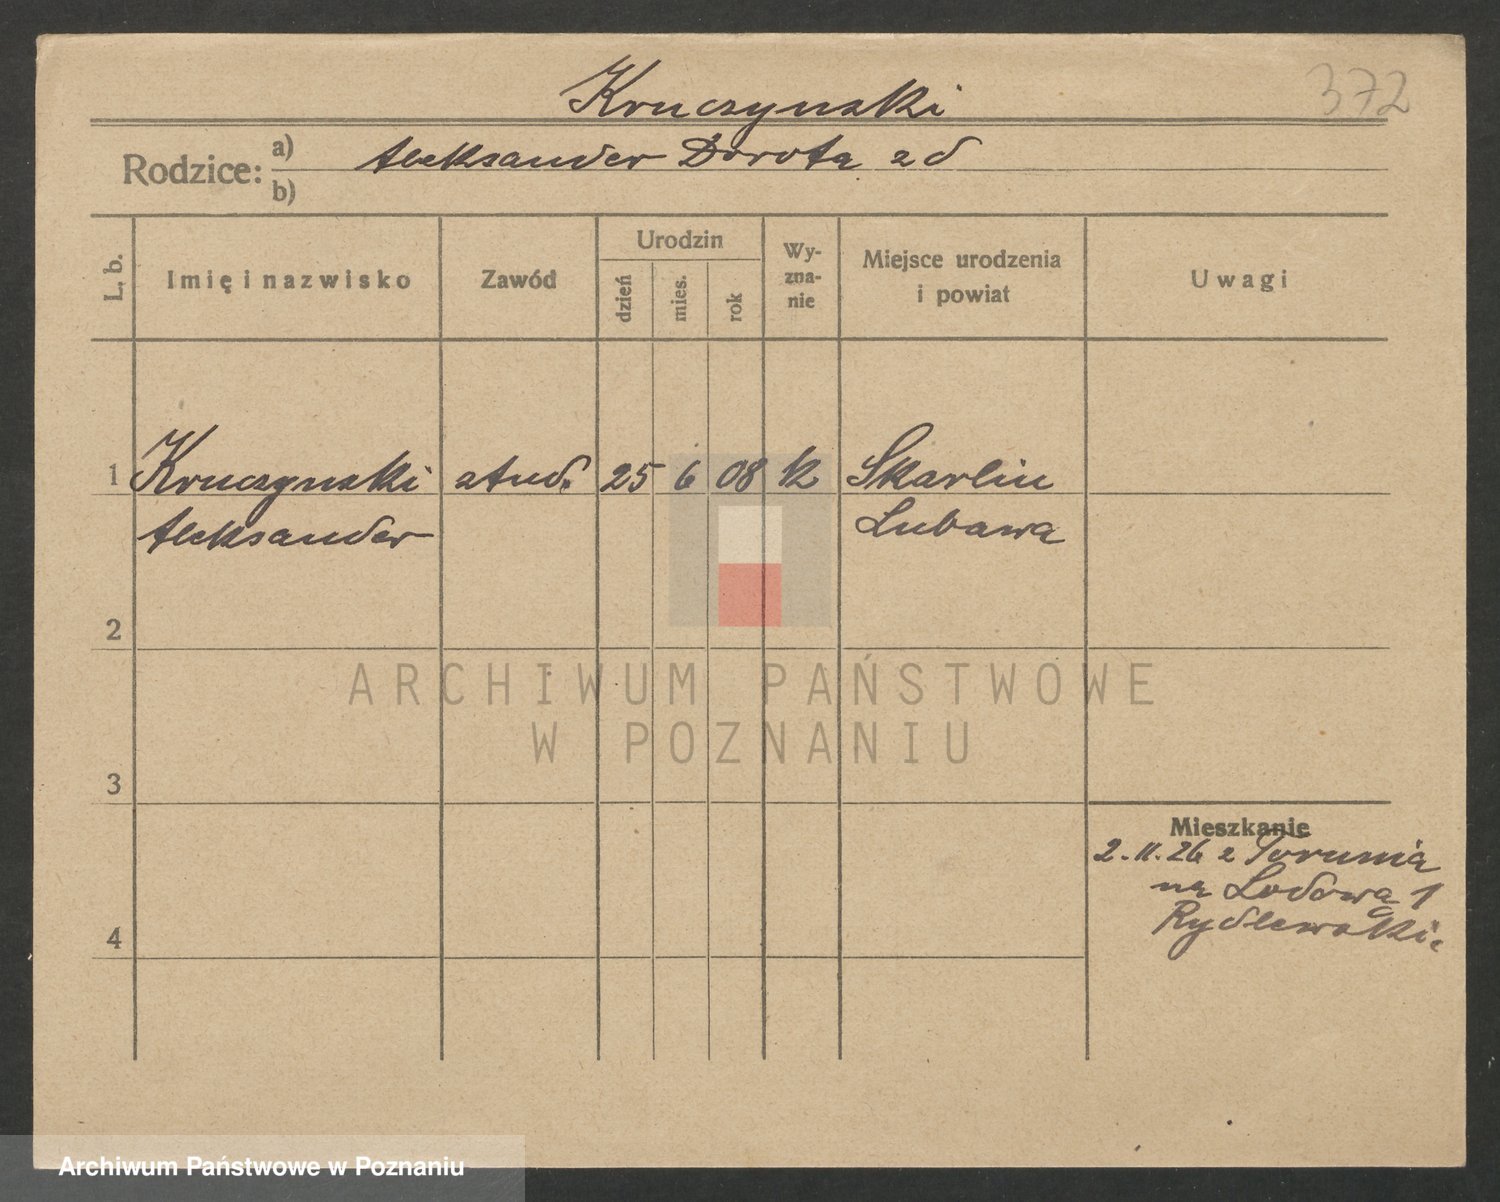 372
Kruczynski
Rodzice: a) Aleksander Dorota z d
b)
L. b. Imię i nazwisko Zawód Urodzin dzień mies. rok Wy-zna-nie Miejsce urodzenia i powiat Uwagi
1 Kruczynski stud. 25 6 08 k Skarlin
Aleksander Lubawa
2
ARCHIWUM PAŃSTWOWE
W POZNANIU
3
Mieszkanie
2.11.26 z Torunia
na Lodowa 1
Rydlewski.
4
Archiwum Państwowe w Poznaniu